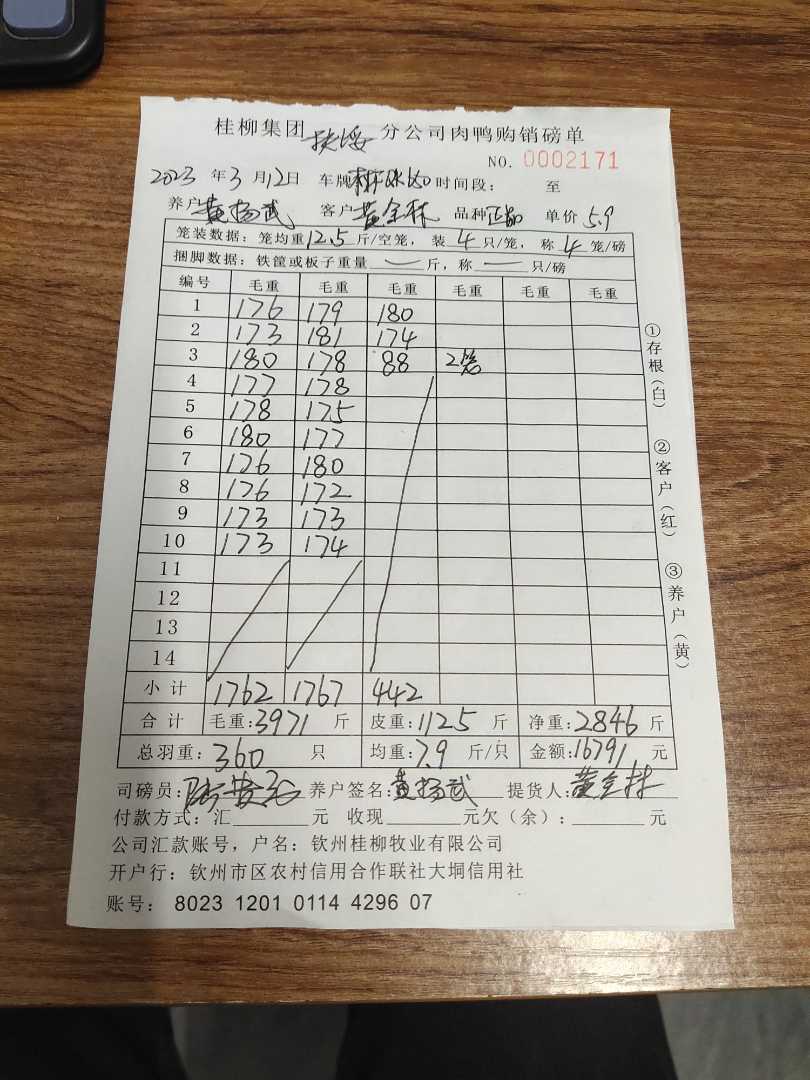 桂柳集团扶绥分公司肉鸭购销磅单
NO. 0002171
2023年3月12日 车牌 时间段： 至
养户黄扬武 客户黄全林 品种正品 单价5.9
笼装数据：笼均重12.5斤/空笼，装4只/笼，称4笼/磅
捆脚数据：铁筐或板子重量一斤，称一只/磅
编号 毛重 毛重 毛重 毛重 毛重 毛重
1 176 179 180
2 173 181 174
3 180 178 88 2笼
4 177 178
5 178 175
6 180 177
7 176 180
8 176 172
9 173 173
10 173 174
11
12
13
14
小计 1762 1767 442
合计 毛重：3971斤 皮重：1125斤 净重：2846斤
总羽重：360只 均重：7.9斤/只 金额：16791元
司磅员： 养户签名：黄扬武 提货人：黄全林
付款方式：汇______元 收现______元欠（余）：______元
公司汇款账号，户名：钦州桂柳牧业有限公司
开户行：钦州市区农村信用合作联社大垌信用社
账号：8023 1201 0114 4296 07
①存根（白）
②客户（红）
③养户（黄）